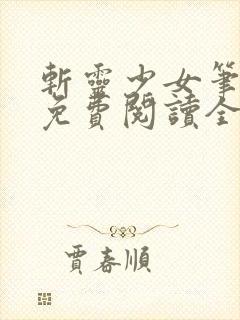 斬靈少女筆
免費閱讀全
賈春順